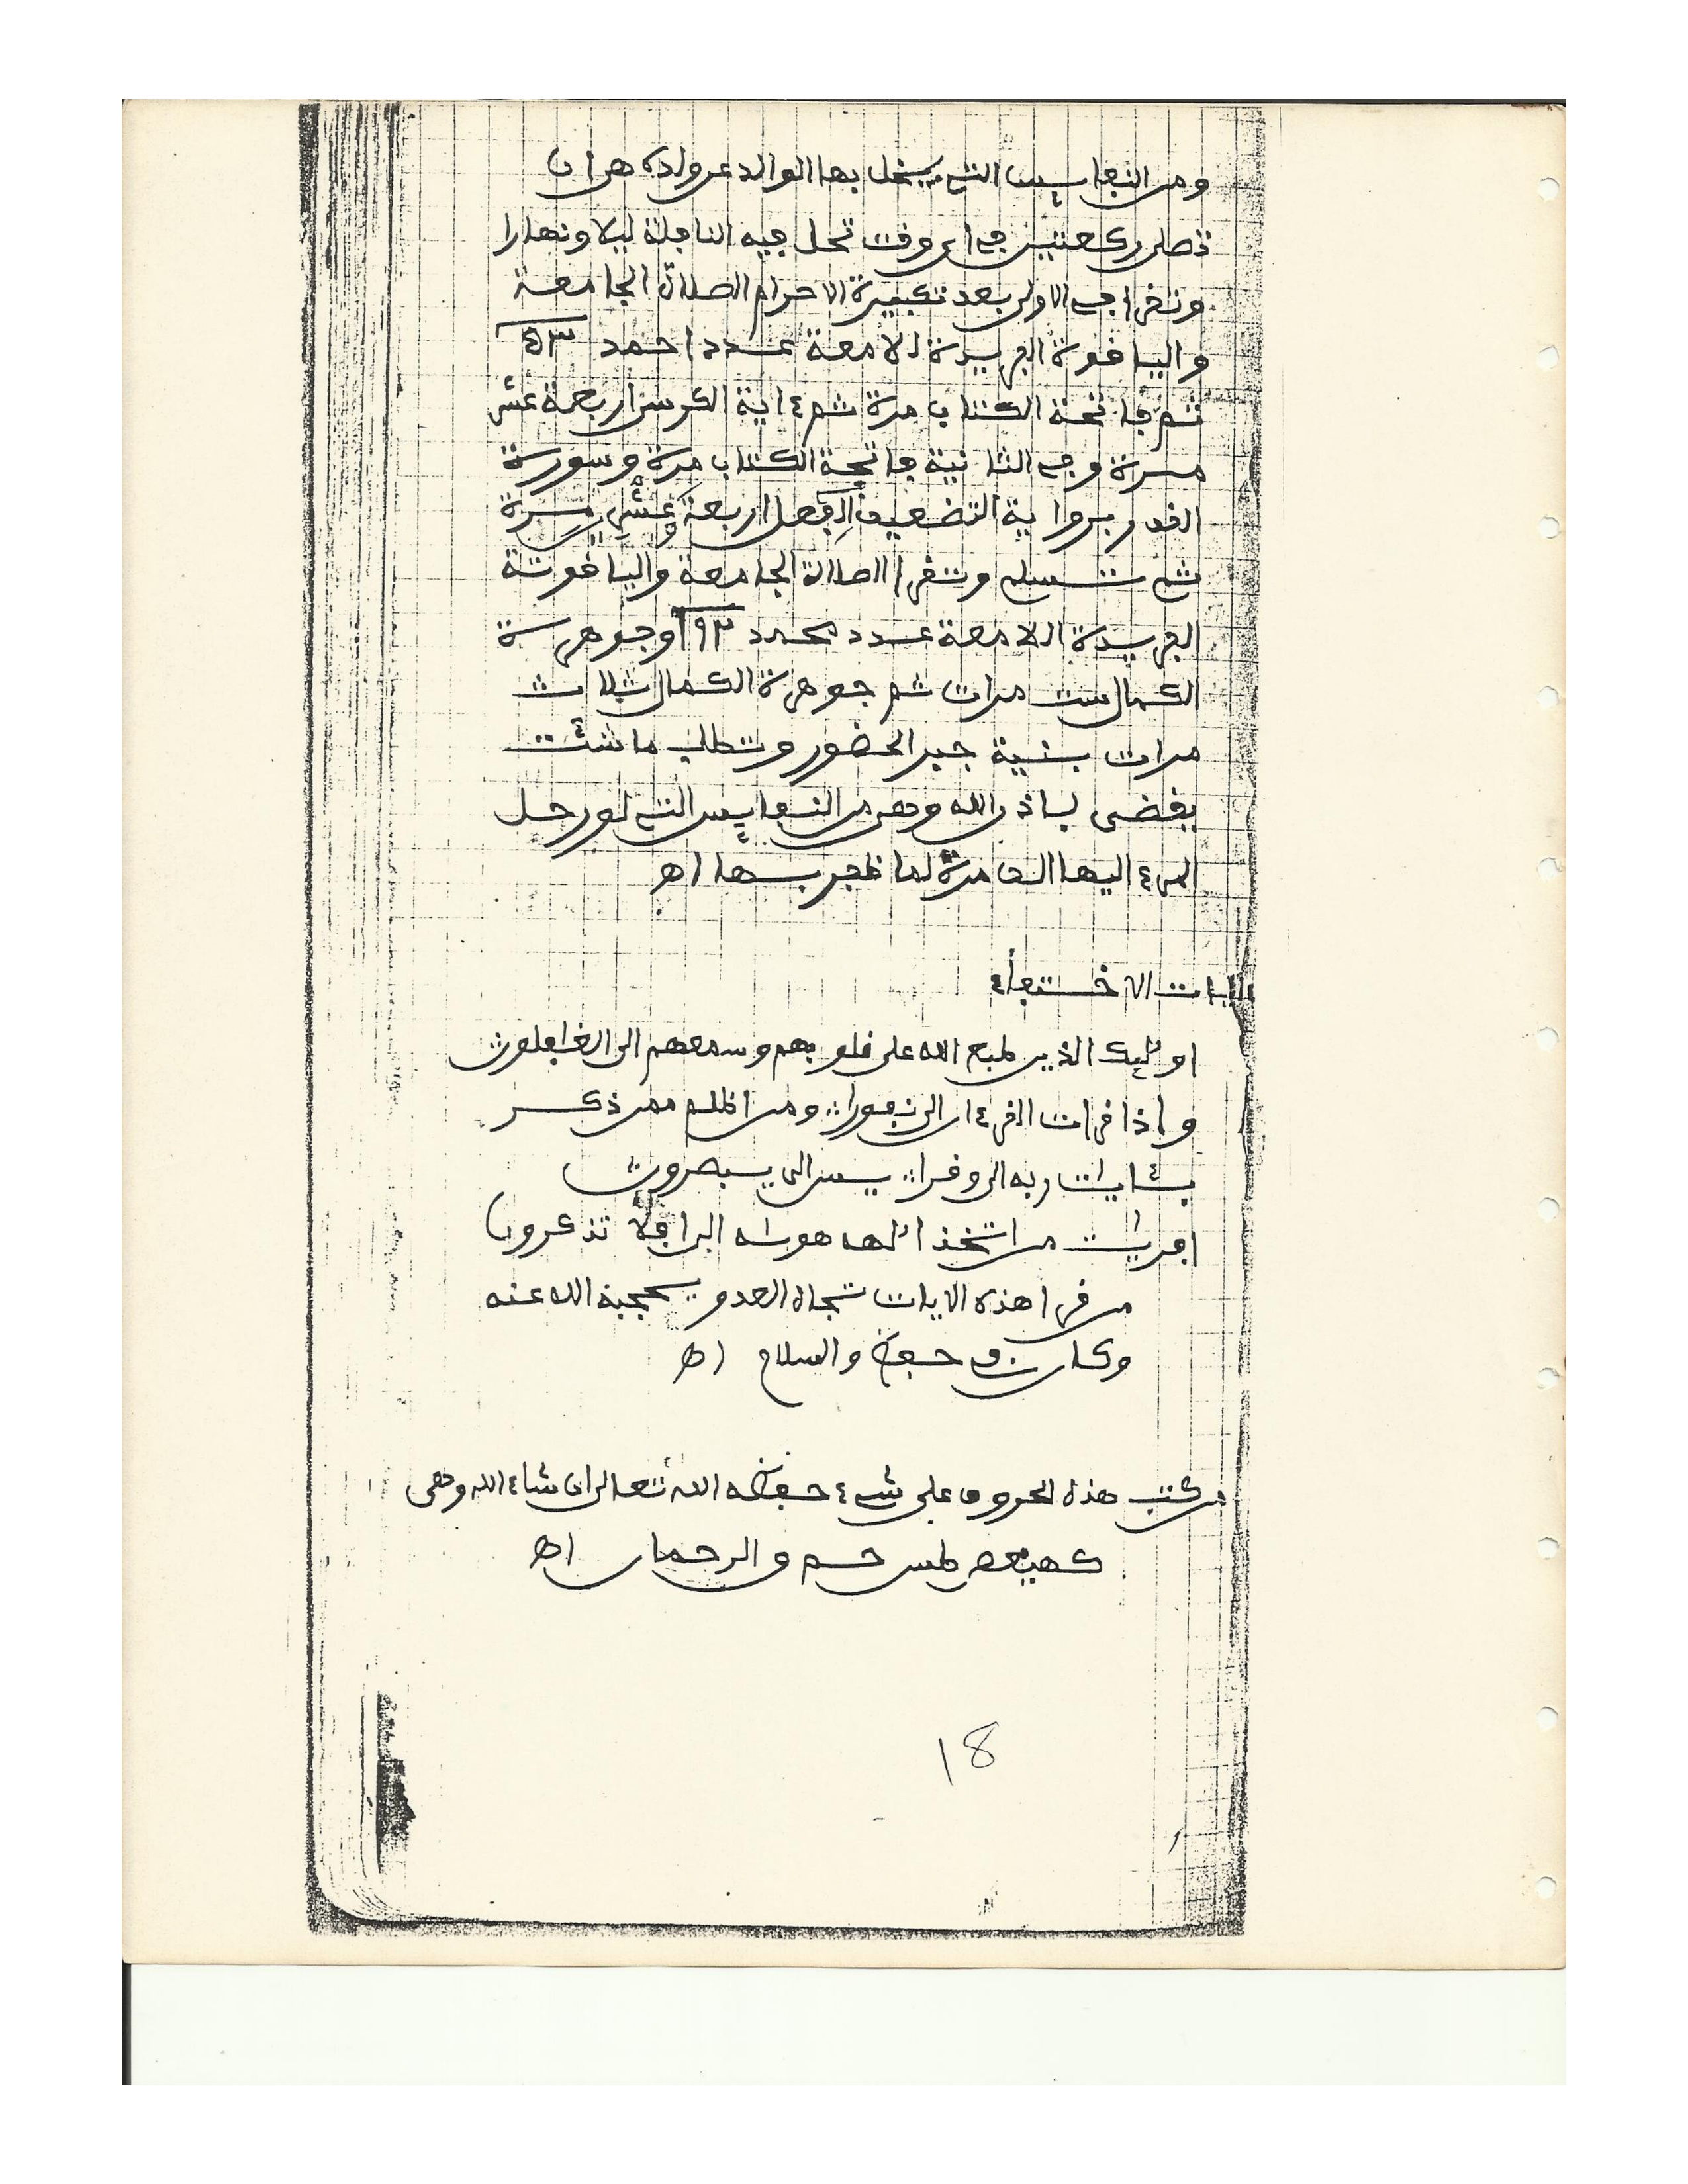 ومن النفايس التي يبخل بها الوالد عن ولده هي ان
تصلي ركعتين في اي وقت تحل فيه النافلة ليلا ونهارا
وتقرا في الاولى بعد تكبيرة الاحرام الصلاة الجامعة
والياقوتة الفريدة اللامعة عدد احمد ٥٣
ثم فاتحة الكتاب مرة ثم ءاية الكرسي اربعة عشر
مرة وفي الثانية فاتحة الكتاب مرة وسورة
القدر اربعة عشر مرة
ثم تسلم وتقرا الصلاة الجامعة والياقوتة
الفريدة اللامعة عدد محمد ٩٢ اوجوهرة
الكمال ست مرات ثم جوهرة الكمال ثلاث
مرات بنية جبر الحضور وتطلب ما شئت
يقضى باذن الله وهي من النفايس التي لو رحل
المرء اليها الف مرة لما ظفر بها اه
ءايات الاختفاء
اولئك الذين طبع الله على قلوبهم وسمعهم الى الغافلون
واذا قرات القرءان الى نفورا ومن اظلم ممن ذكر
بئايات ربه الى وقرا يس الى يبصرون
افريت من اتخذ الهه هواه الى افلا تذكرون
من قرا هذه الايات تجاه العدو يحجبه الله عنه
وكان في حفظه والسلام اه
من كتب هذه الحروف على شيء حفظه الله تعالى ان شاء الله وهي
كهيعص طس حم و الرحمان اه
18